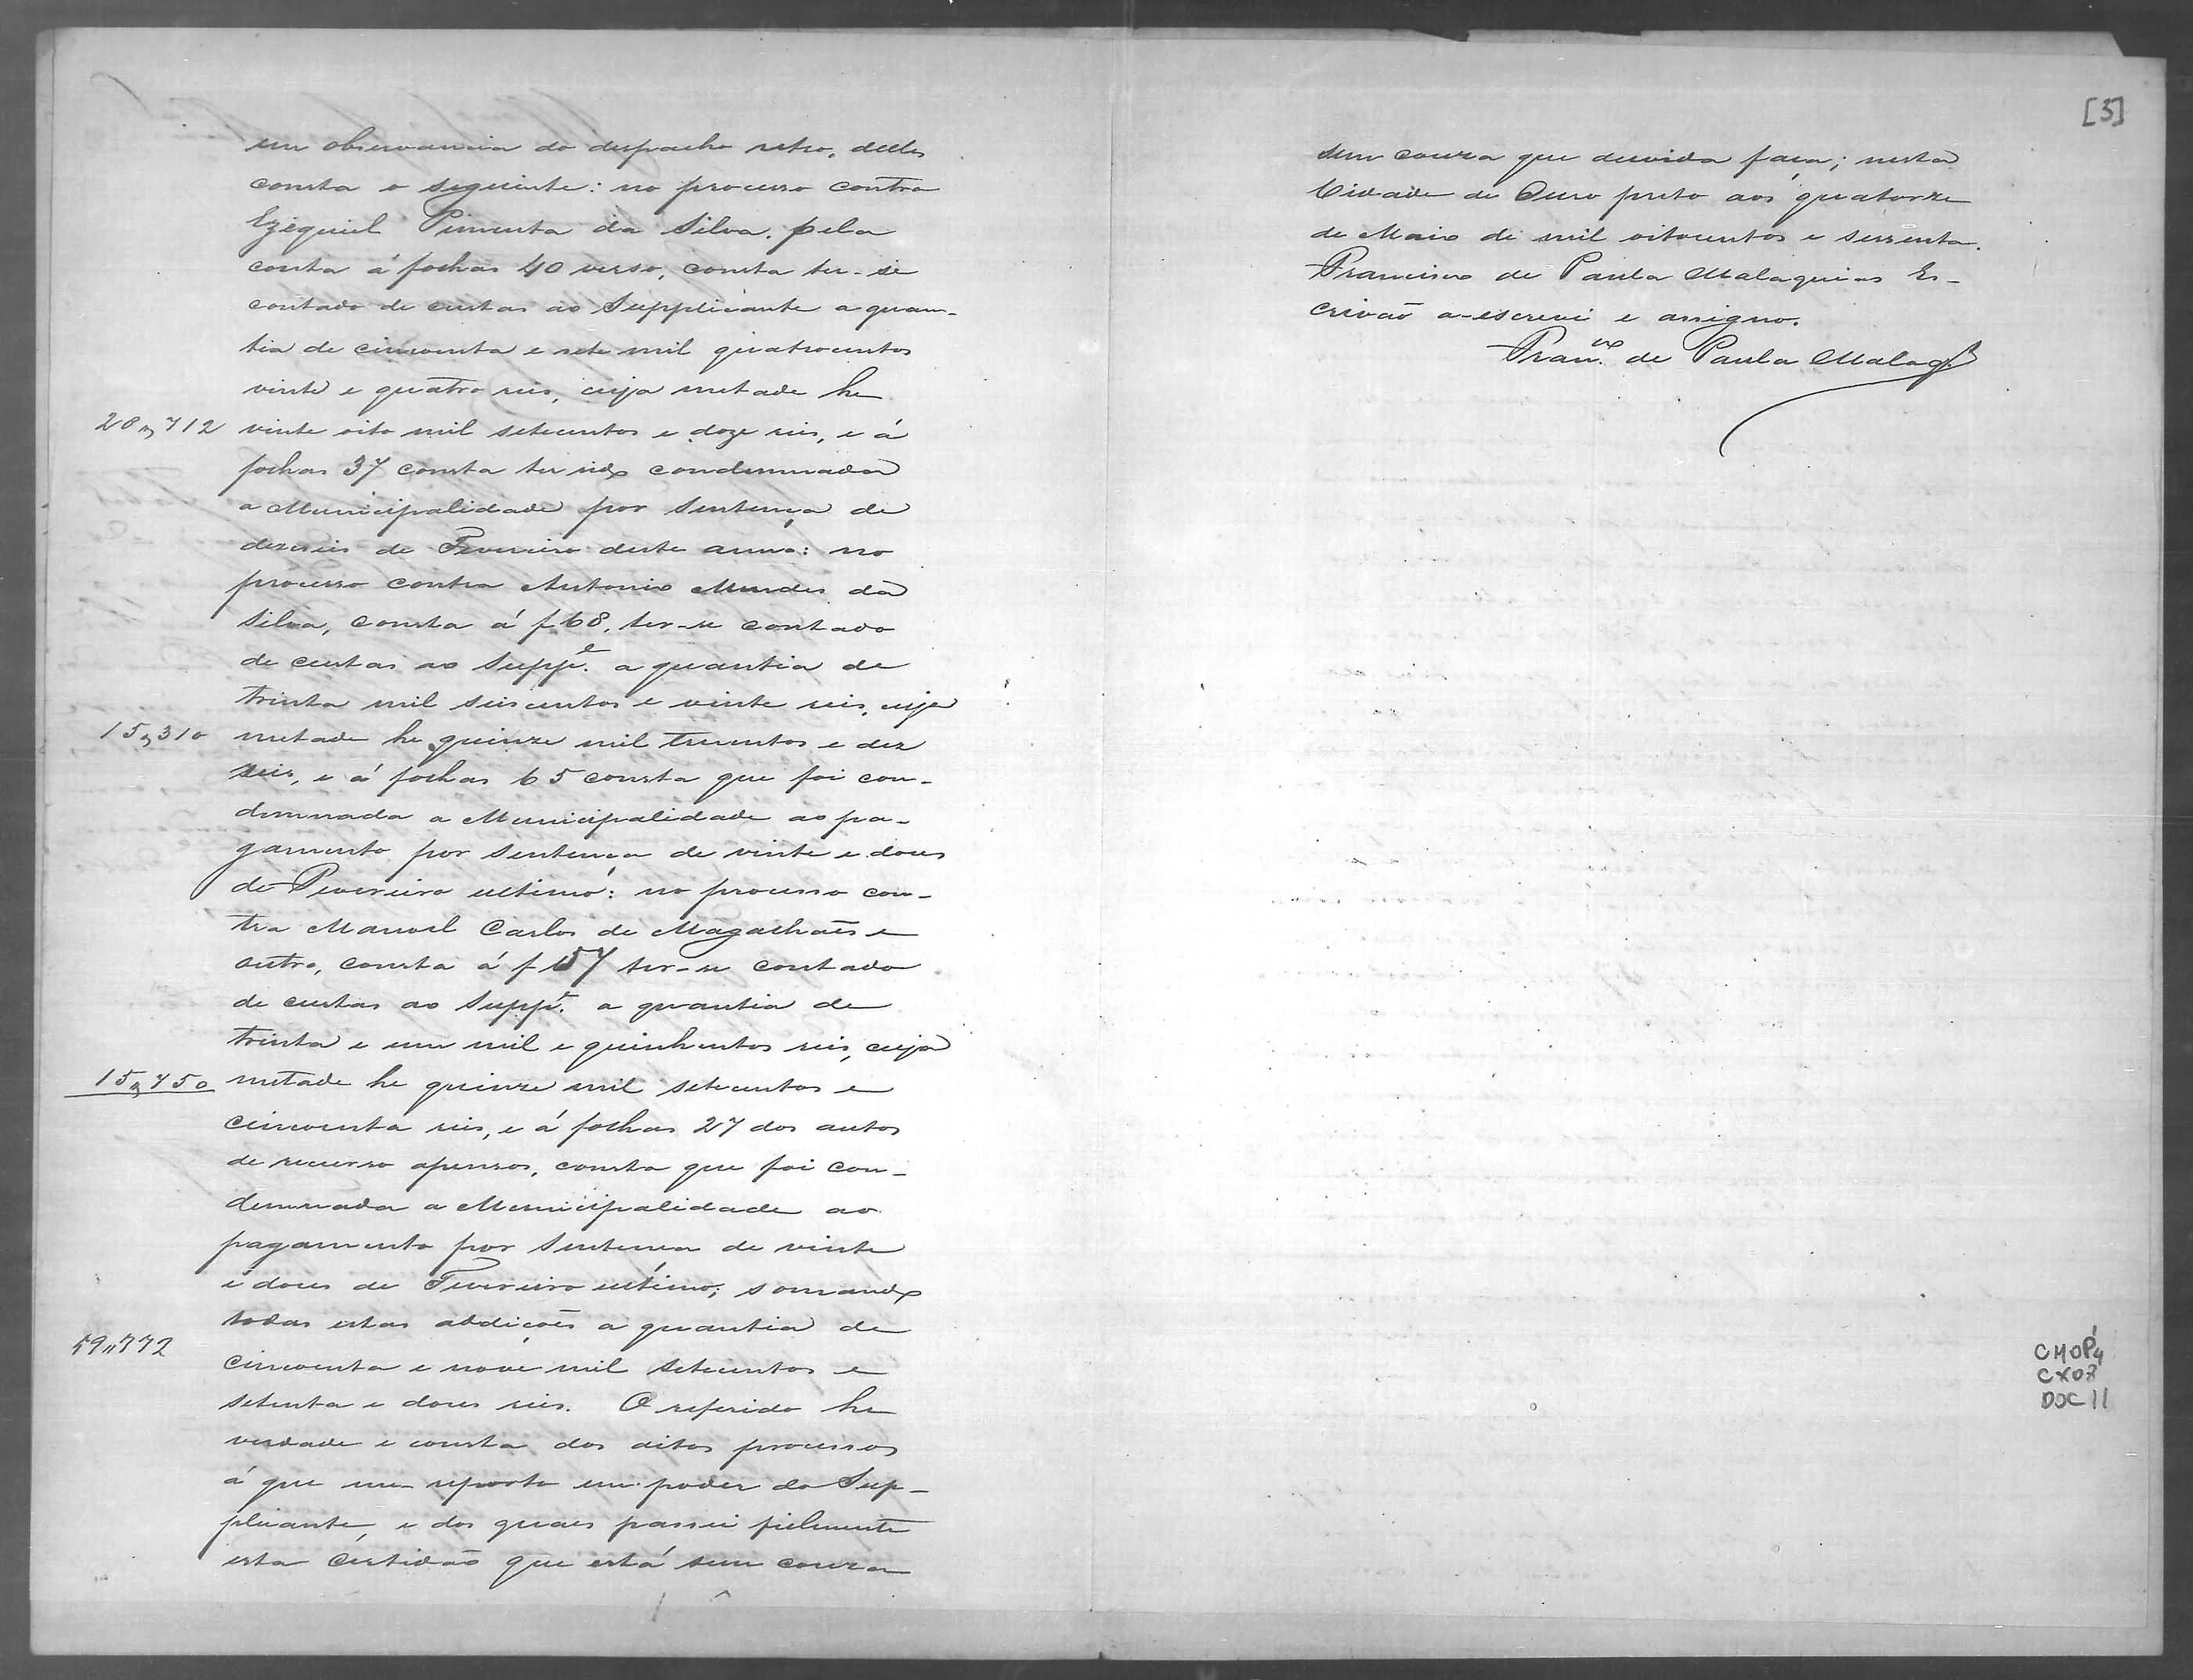 em observancia do despacho retro, delles
consta o seguinte: no processo contra
Ezequiel Pimenta da Silva, pela
conta á folhas 40 verso, consta ter-se
contado de custas ao Supplicante a quan-
tia de cincoenta e sete mil quatrocentos
vinte e quatro reis, cuja metade he
28,,712 vinte oito mil setecentos e doze reis, e á
folhas 37 consta ter sido condemnada
a Municipalidade por Sentença de
dezeseis de Fevereiro deste anno: no
processo contra Antonio Mendes da
Silva, consta á f 68, ter-se contado
de custas ao Suppe. a quantia de
trinta mil seis centos e vinte reis, cuja
15,,310 metade he quinze mil trecentos e dez
reis, e á folhas 65 consta que foi con-
demnada a Municipalidade ao pa-
gamento por Sentença de vinte e dous
de Fevereiro ultimo: no processo con-
tra Manoel Carlos de Magalhaẽs e
outro, consta á f 57 ter-se contado
de custas ao Suppe. a quantia de
trinta e um mil e quinhentos reis, cuja
15,,750 metade he quinze mil setecentos e
cincoenta reis, e á folhas 27 dos autos
de recurso apensos, consta que foi con-
demnada a Municipalidade ao
pagamento por Sentença de vinte
e dous de Fevereiro ultimo; somando
todas estas addições a quantia de
59,,772 cincoenta e nove mil setecentos e
setenta e dous reis. O referido he
verdade e consta dos ditos processos
á que me reporto em poder do Sup-
plicante, e dos quaes passei fielmente
esta Certidão que está sem couza
[3]
sem couza que duvida faça; nesta
Cidade de Ouro preto aos quatorze
de Maio de mil oitocentos e sessenta.
Francisco de Paula Malaquias Es-
crivão a-escrevi e assigno.
Franco. de Paula Malaqs.
CMOP
CX07
DOC 11